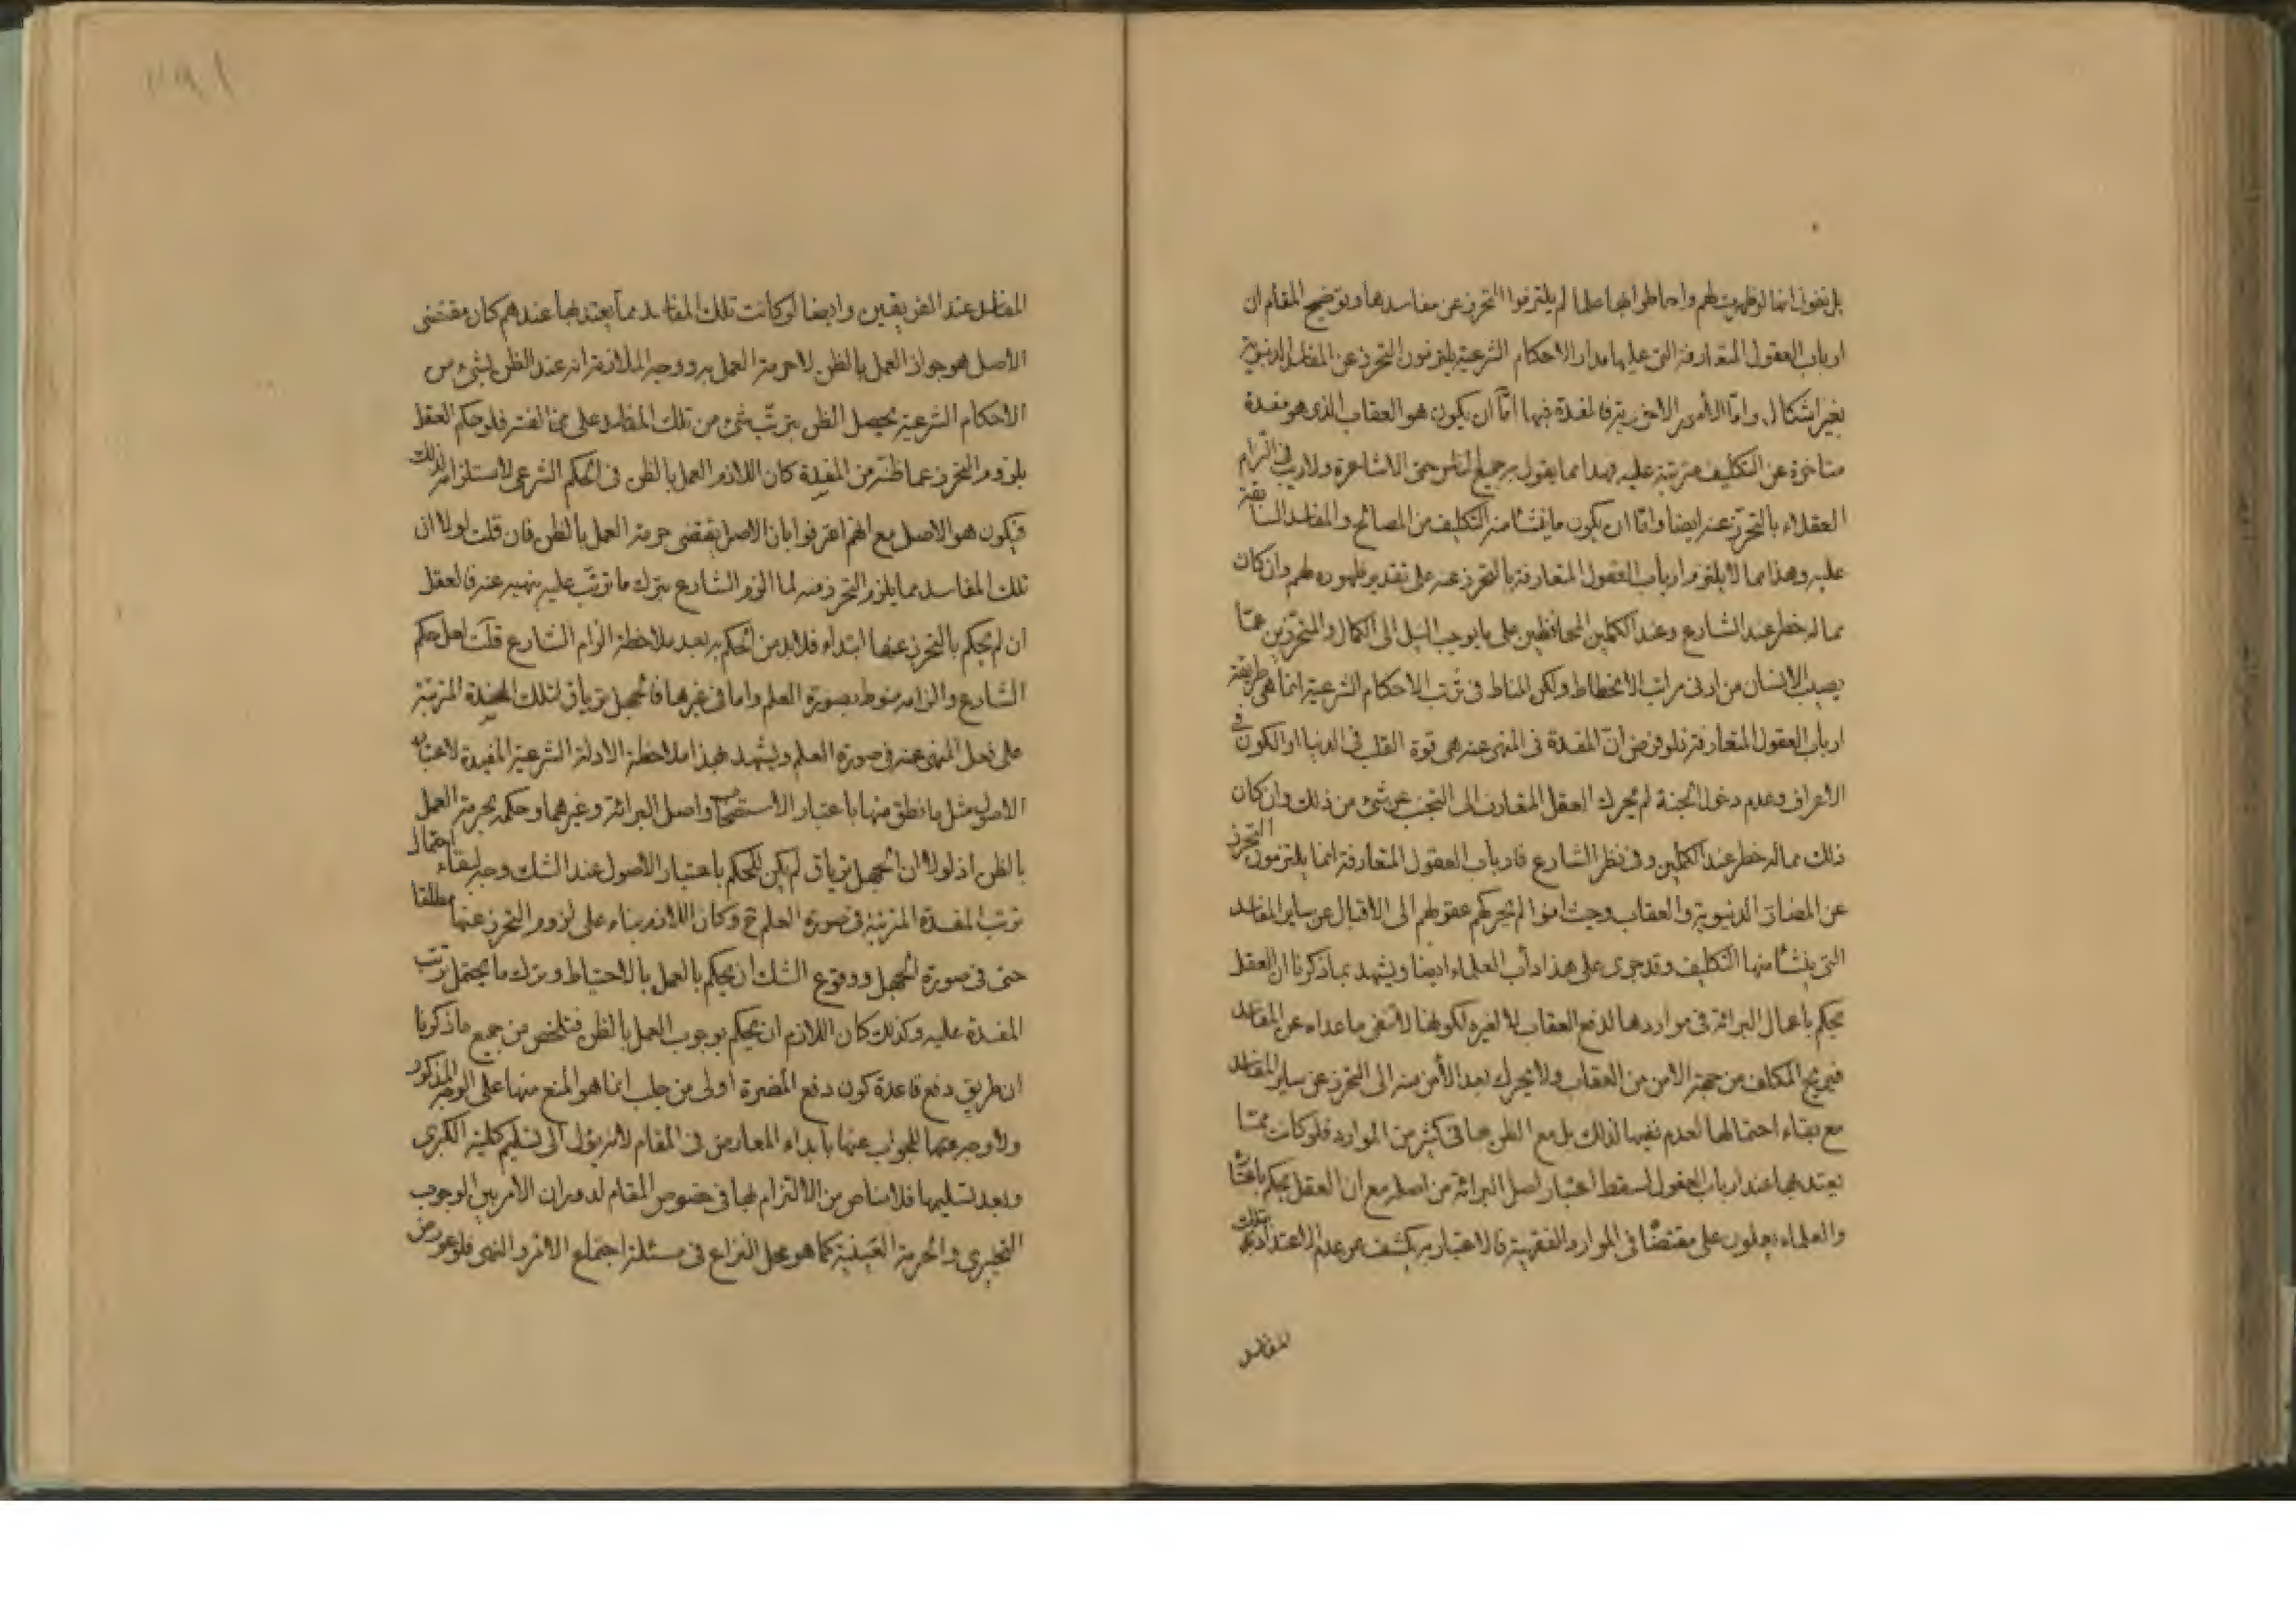 بل نقول انها لو ظهرت لهم واحاطوا بها علما لم يلتزموا التحرز عن مفاسدها وتوضيح المقام ان
ارباب العقول المتعارفة التى عليها مدار الاحكام الشرعية يلتزمون التحرز عن المفاسد الدنيوية
بغير اشكال واما الأمور الاخروية فالمفسدة فيها امّا ان يكون هو العقاب الذى هو مفسدة
متاخرة عن التكليف مترتبة عليه بهذا مما يقول به جميع الناس حتى الاشاعرة ولا ريب فى الزام
العقلاء بالتحرّز عنه ايضا وامّا ان يكون ما ينشأ منه التكليف من المصالح والمفاسد السابقة
عليه وهذا مما لا يلتزم ارباب العقول المتعارفة بالتحرز عنه على تقدير ظهوره لهم وان كان
مما له خطر عند الشارع وعند الكملين المحافظين على ما يوجب النيل الى الكمال والمتحرّزين عمّا
يصيب الانسان من ادنى مراتب الانحطاط ولكن المناط فى ترتب الاحكام الشرعية انما هى طريقة
ارباب العقول المتعارفة فلو فرض انّ المفسدة فى المنهى عنه هى قوة القلب فى الدنيا او الكون فى
الاعراف وعدم دخول الجنة لم يحرك العقل المتعارف الى التجنب عن شئ من ذلك وان كان
ذلك مما له خطر عند الكملين وفى نظر الشارع فارباب العقول المتعارفة انما يلتزمون التحرز
عن المضار الدنيوية والعقاب وحيث امنوا لم يحركهم عقولهم الى الاقبال عن ساير المفاسد
التى ينشأ منها التكليف وقد جرى على هذا دأب العلماء ايضا ويشهد بما ذكرنا ان العقل
يحكم باعمال البرائة فى مواردها لدفع العقاب لا لغيره لكونها لا تنفى ما عداه عن المفاسد
فيريح المكلف من جهة الامن من العقاب ولا يحرك بعد الأمن منه الى التحرز عن ساير المفاسد
مع بقاء احتمالها لعدم نفيها لذلك بل مع الظن بها فى كثير من الموارد فلو كانت ممّا
يعتد بها عند ارباب العقول لسقط اعتبار اصل البرائة من اصله مع ان العقل يحكم باعتباره
والعلماء يعملون على مقتضاه فى الموارد الفقهية فالاعتبار به يكشف عن عدم الاعتداد بتلك
المفاسد
المفاسد عند الفريقين وايضا لو كانت تلك المفاسد مما يعتد بها عندهم كان مقتضى
الاصل هو جواز العمل بالظن لا حرمة العمل به ووجه الملازمة انه عند الظن بشئ من
الاحكام الشرعية يحصل الظن بترتّب شئ من تلك المفاسد على مخالفته فلو حكم العقل
بلزوم التحرز عما ظنّ من المفسدة كان اللازم العمل بالظن فى الحكم الشرعى لاستلزامه لذلك
فيكون هو الاصل مع انهم اعترفوا بان الاصل يقتضى حرمة العمل بالظن فان قلت لولا ان
تلك المفاسد مما يلزم التحرز منه لما الزم الشارع بترك ما ترتّب عليه بنهيه عنه فالعقل
ان لم يحكم بالتحرز عنها ابتداء فلابد من الحكم به بعد ملاحظة الزام الشارع قلت لعل حكم
الشارع والزامه منوط بصورة العلم واما فى غيرها فالجهل ترياق لتلك المفسدة المترتبة
على فعل المنهى عنه فى صورة العلم ويشهد بهذا ملاحظة الادلة الشرعية المفيدة لاعتبار
الاصول مثل ما نطق منها باعتبار الاستصحاب واصل البرائة وغيرهما وحكمه بحرمة العمل
بالظن اذ لولا ان الجهل ترياق لم يكن للحكم باعتبار الاصول عند الشك وجه لبقاء احتمال
ترتب المفسدة المترتبة فى صورة العلم ح وكان اللازم بناء على لزوم التحرز عنها مطلقا
حتى فى صورة الجهل ووقوع الشك ان يحكم بالعمل بالاحتياط وبترك ما يحتمل ترتب
المفسدة عليه وكذلك كان اللازم ان يحكم بوجوب العمل بالظن فتلخص من جميع ما ذكرنا
ان طريق دفع قاعدة كون دفع المضرة اولى من جلب انما هو المنع منها على الوجه المذكور
ولا وجه للجواب عنها بابداء المعارض فى المقام لانه يؤل الى تسليم كلية الكبرى
وبعد تسليمها فلا مناص من الالتزام بها فى خصوص المقام لدوران الامر بين الوجوب
التخييرى والحرمة العينية كما هو محل النزاع فى مسئلة اجتماع الامر والنهى فلو عورض